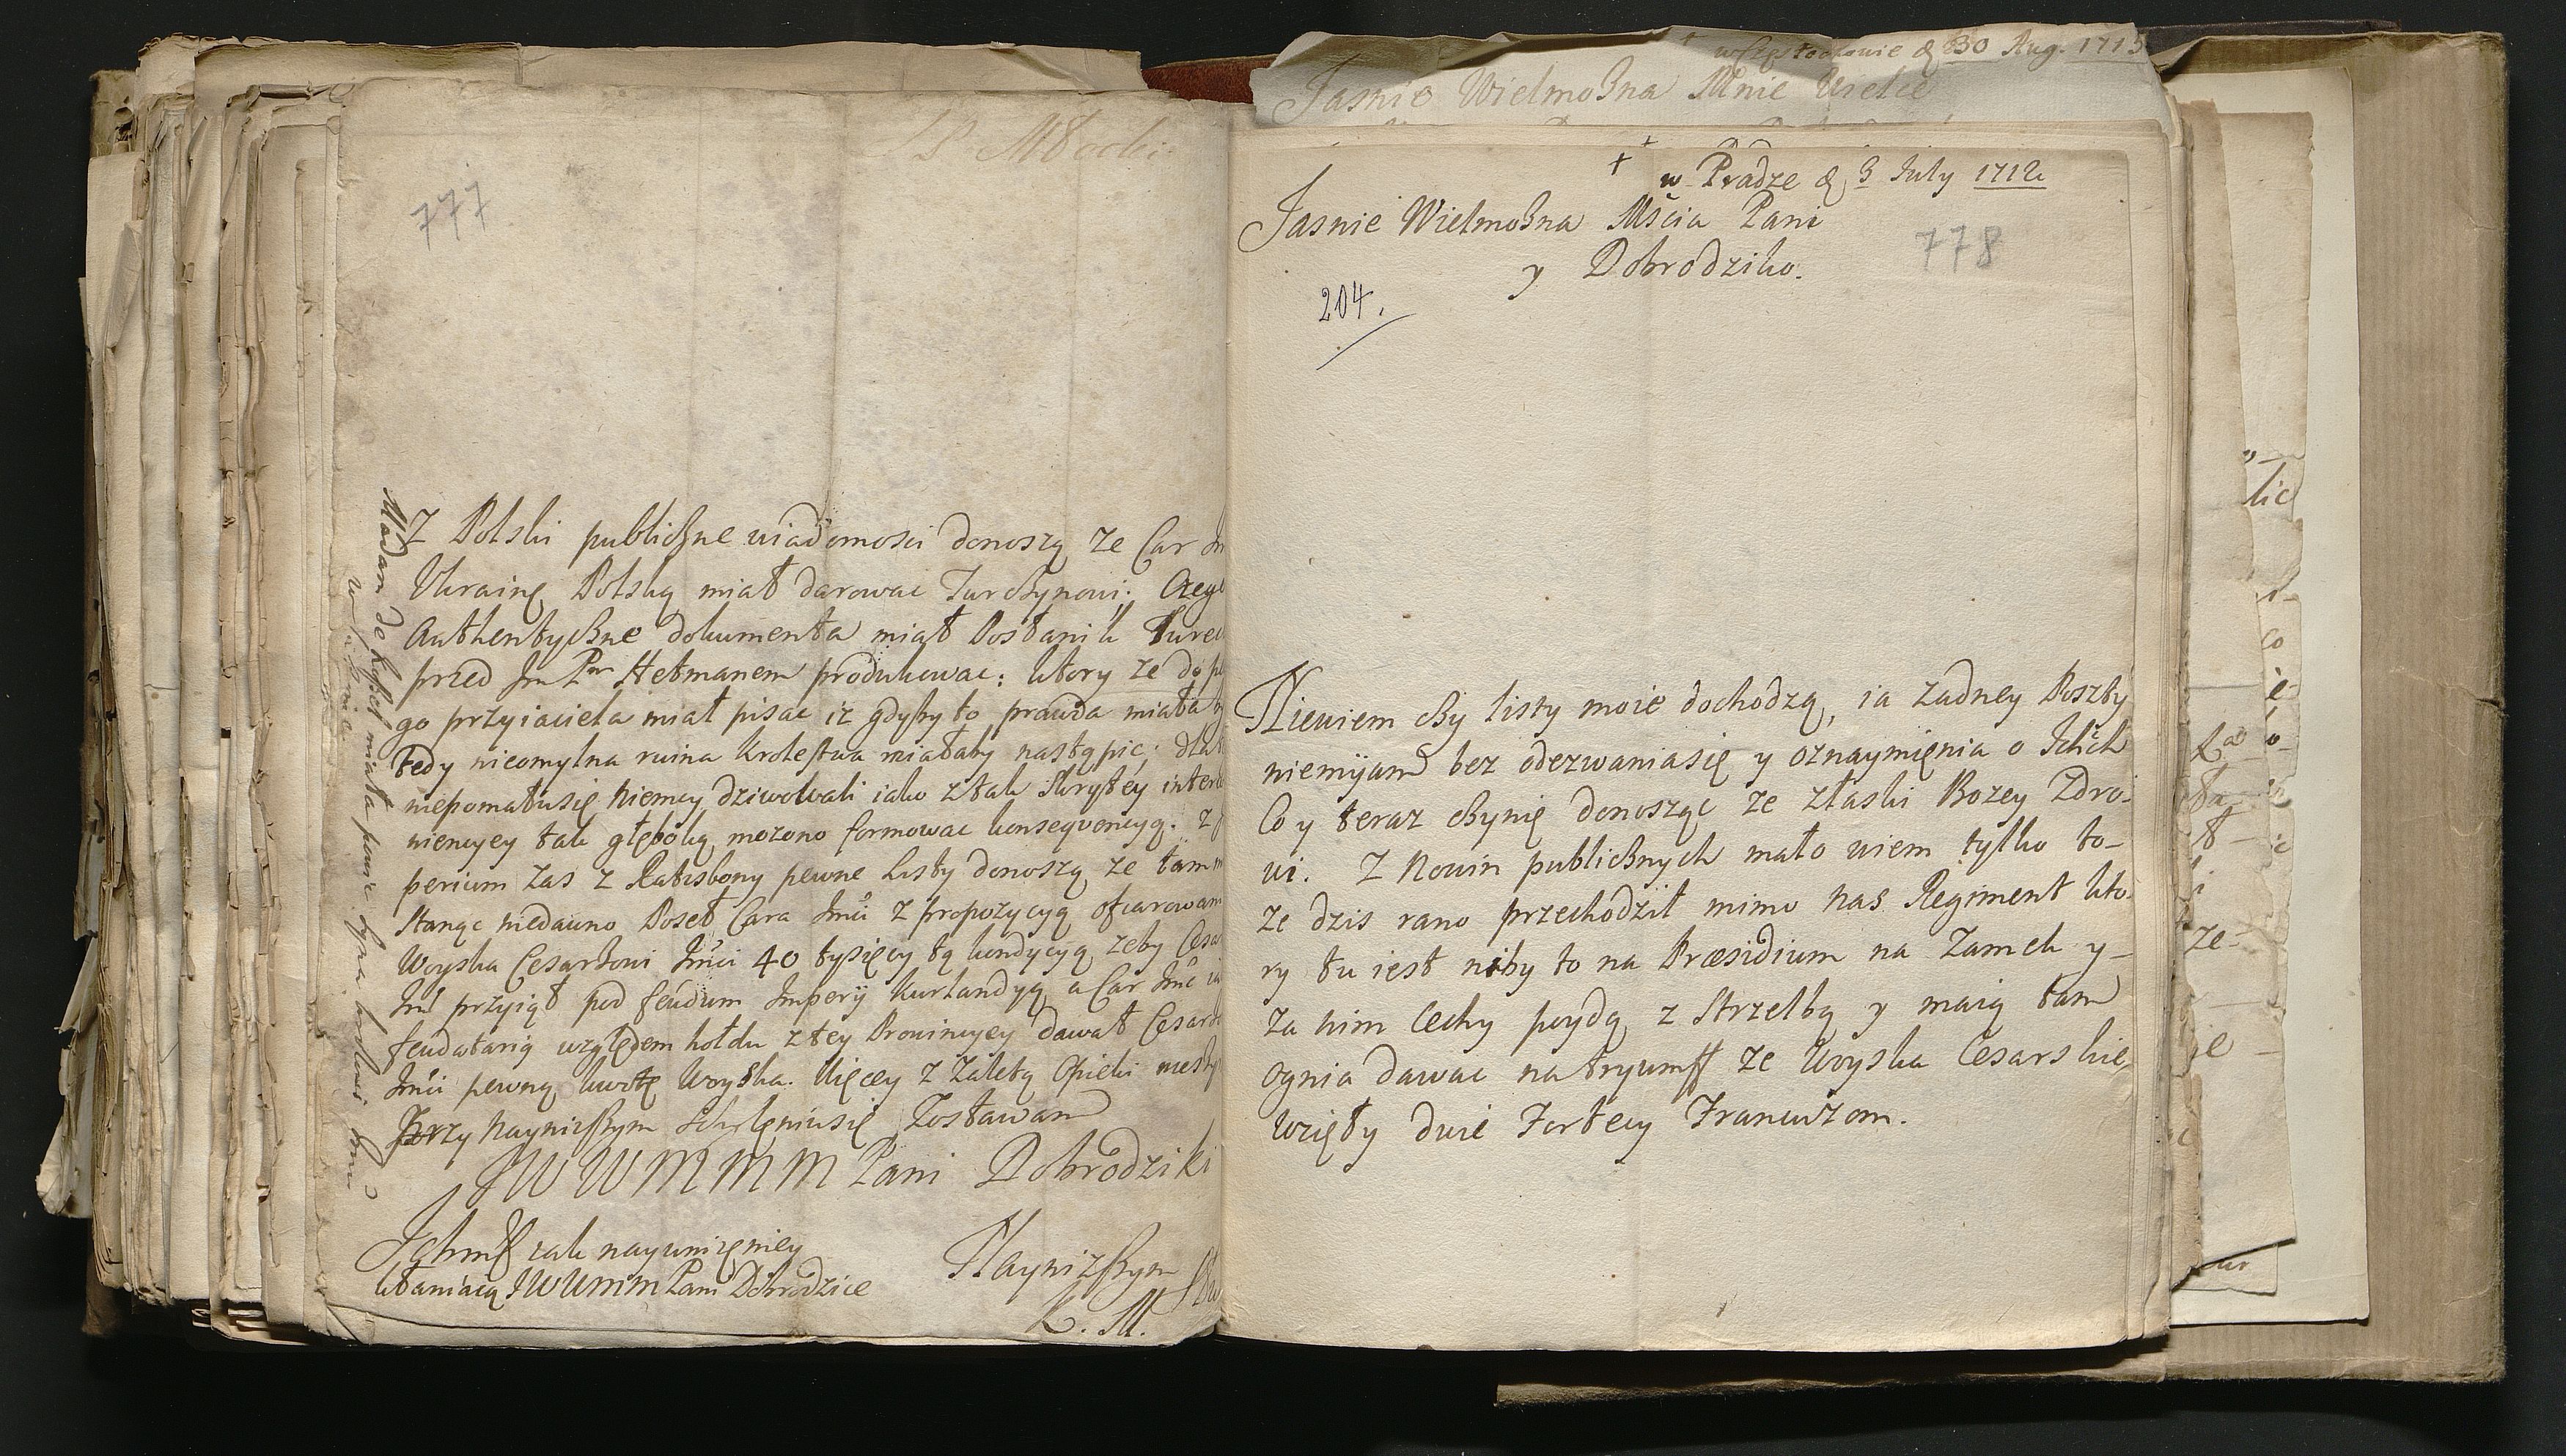 777
Z Polski publiczne wiadomosci donoszą ze Car Im
Ukrainę Polską miał darowac Turczynowi; Czego
Authentyczne dokumenta miał Posłanik Turec
przed Im Pm Hetmanem produkowac: ktory ze do
go przyiaciela miał pisac iz gdyby to prawda miała
tedy nieomylna ruina Krolestwa miałaby nastąpic;
niepomałusię Niemcy dziwowali iako z tak skrytey
niencyey tak głęboką mozono formowac konseqvencyą. Z
perium zas z Ratisbony pewne Listy donoszą ze tam
Stanąc niedawno Poseł Cara Imci z propozycyą ofiarowan
Woyska Cesarzowi Imci 40 tysięcy tą kondycyą zeby Cesa
Imc przyiął pod feudum Imperij Kurlandyą a Car Imc
feudatarią względem hołdu z tey Prowincyey dawał Cesarzo
Imci pewną kwotę Woyska. Więcey z Zaletą Opieki
Przy Nayniszym Schyleniusię Zostawam
JWWMMM Pani Dobrodziki
nayunizeniey
kłaniaią JWWMM Pani Dobrodzice
Nayniższym
K. M.
Madam de miała
w Pradze d 3 July 1712
Jasnie Wielmożna Mscia Pani
y Dobrodziko.
778
204.
Niewiem czy listy moie dochodzą, ia zadney Poszty
niemijam bez odezwaniasię y oznaymięnia o
Co y teraz czynię donosząc ze złaski Bozey Zdro-
wi. Z Nowin publicznych mało wiem tylko to-
ze dzis rano przechodził mimo nas Regiment kto-
ry tu iest niby to na Præsidium na Zamek y-
za nim Cechy poydą z Strzelbą y maią tam
ognia dawac na tryumff ze Woyska Cesarskie
wzięły dwie Fortecy Francuzom.
w Częstochowie d 30 Aug. 1713
Jasnie Wielmożna Mnie Wielce
lic
co
ze-